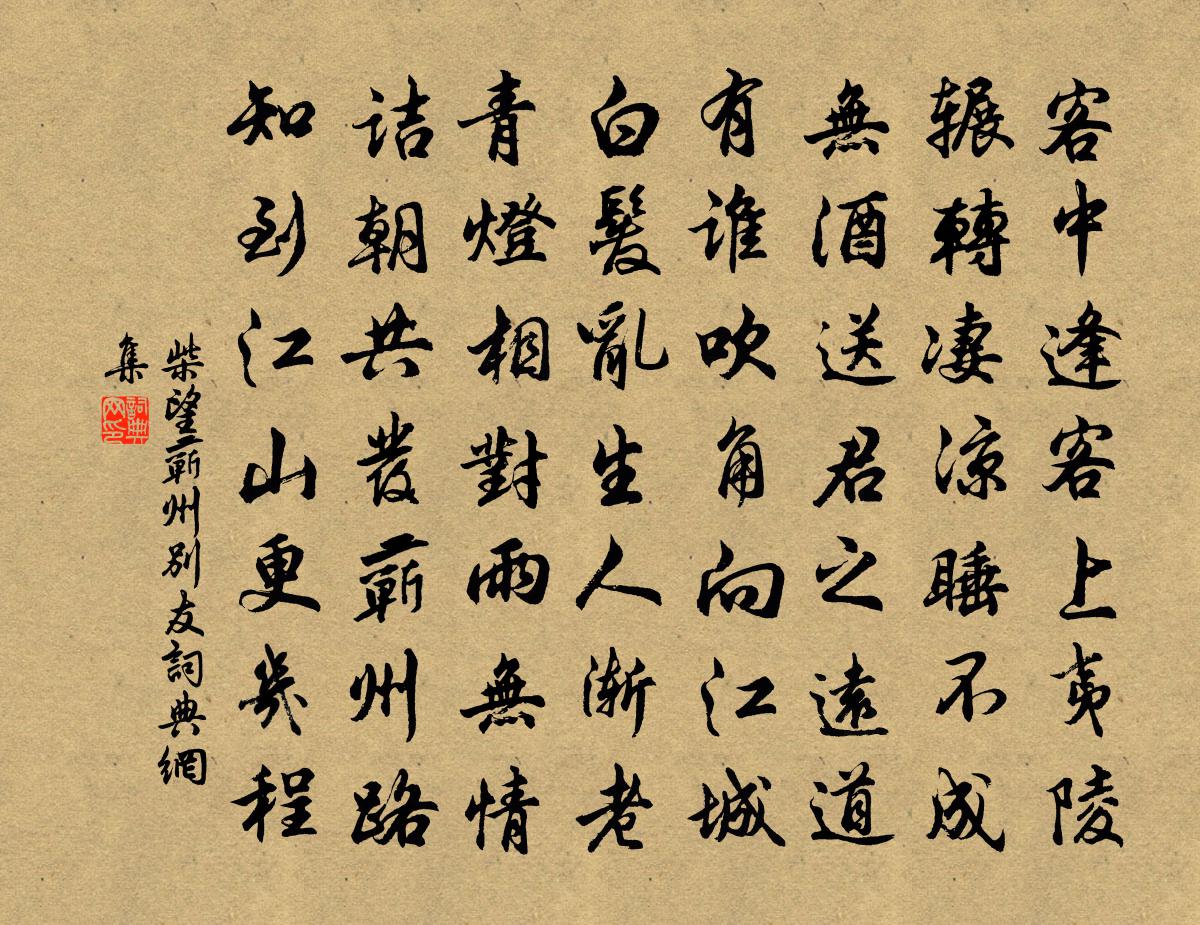 客中逢客上夷陵
輾轉凄凉睡不成
無酒送君之遠道
有誰吹角向江城
白髮亂生人渐老
青燈相對雨無情
诘朝共發蘄州路
知到江山更幾程
柴望蘄州别友詞典網
集
詞典
网印